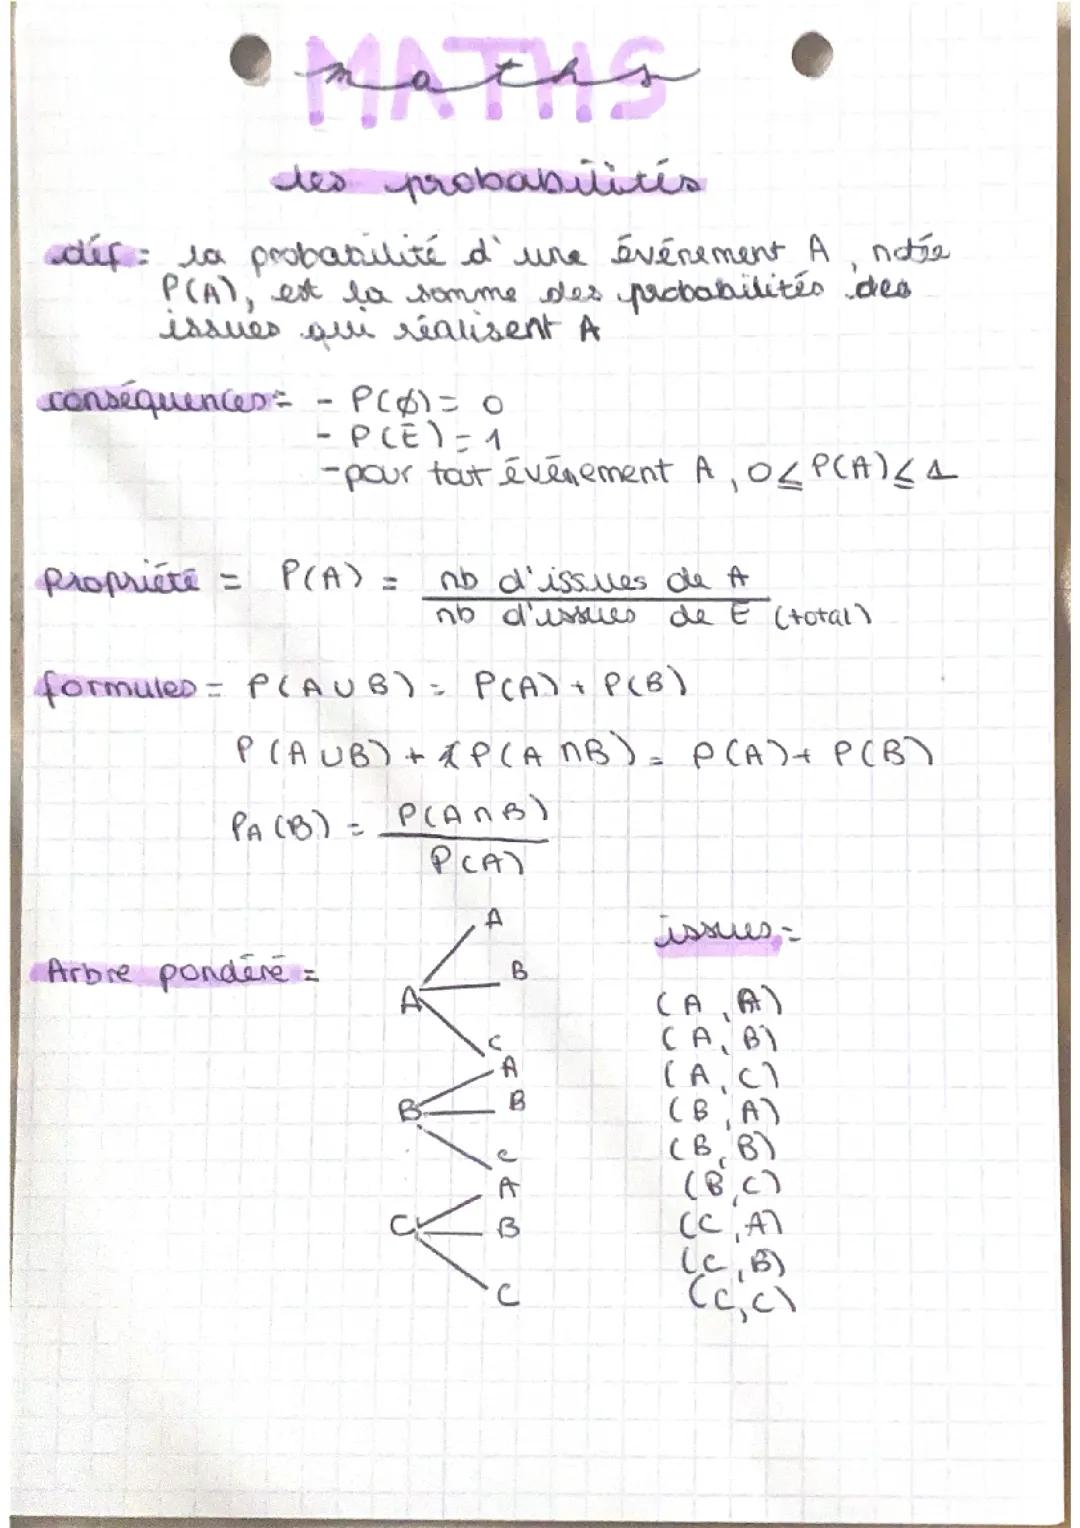 MATHS
maths
les probabilités
déf = la probabilité d'une événement A, notée
P(A), est la somme des probabilités des
issues qui réalisent A
conséquences = - P(∅) = 0
- P(E) = 1
- pour tout événement A, 0 ≤ P(A) ≤ 1
propriété = P(A) = nb d'issues de A
nb d'issues de E (total)
formules = P(A∪B) = P(A) + P(B)
P(A∪B) + P(A∩B) = P(A) + P(B)
PA(B) = P(A∩B)
P(A)
Arbre pondéré =
A
A
B
C
B
A
B
C
C
A
B
C
issues =
(A, A)
(A, B)
(A, C)
(B, A)
(B, B)
(B, C)
(C, A)
(C, B)
(C, C)